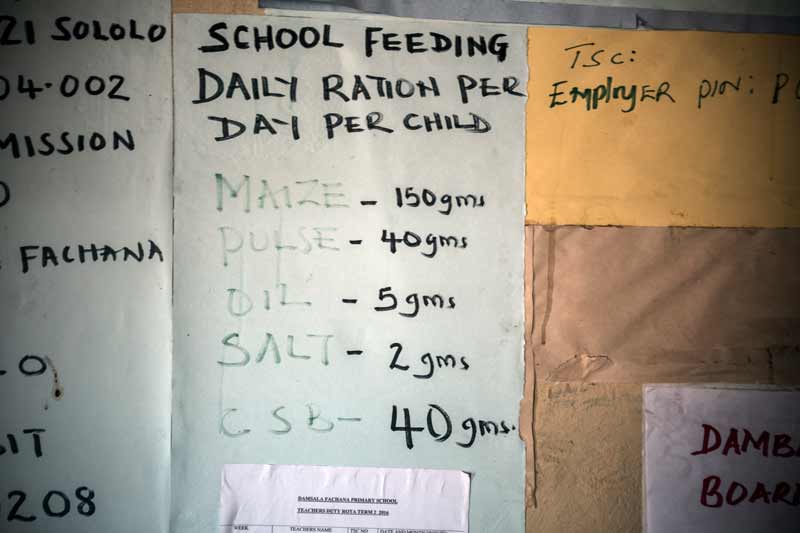 21 SOLOLO
04-002
MISSION
FACHANA
208
SCHOOL FEEDING
DAILY RATION PER
DAY PER CHILD
MAIZE - 150gms
PULSE - 40gms
OIL - 5gms
SALT - 2gms
CSB - 40gms.
DAMBALA FACHANA PRIMARY SCHOOL
TEACHERS DUTY ROTA TERM 2 2016
WEEK TEACHERS NAME TSC NO DATE AND MONTH
TSC:
EmployER PIN: P
DAMB
BOAR